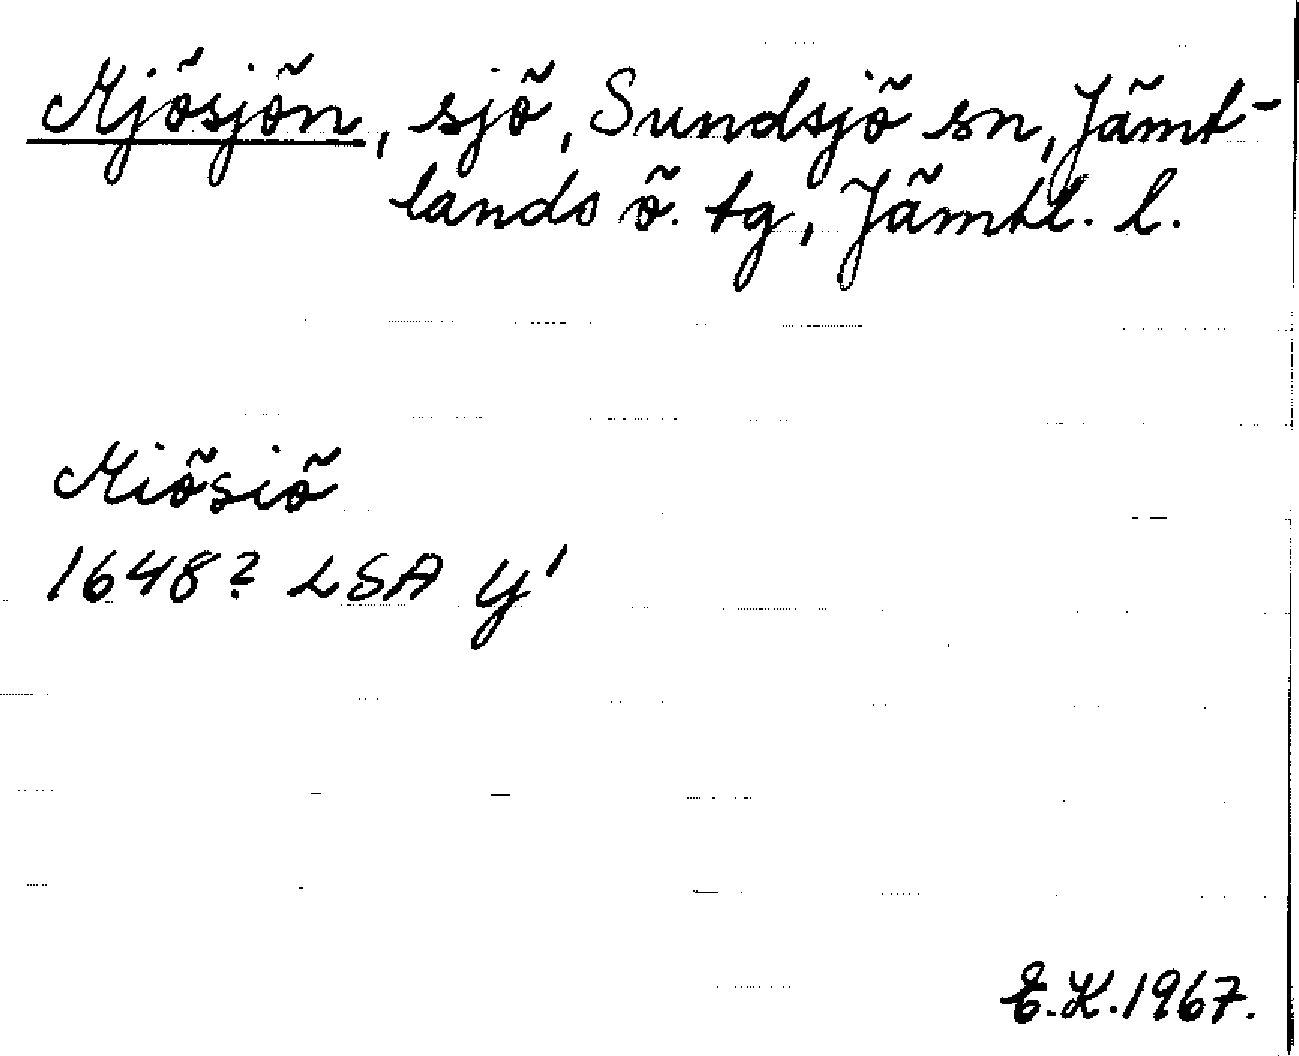 Mjösjön, sjö, Sundsjö sn, Jämt-
lands ö. tg, Jämtl. l.
Miösiö
1648? LSA Y'
E.K.1967.